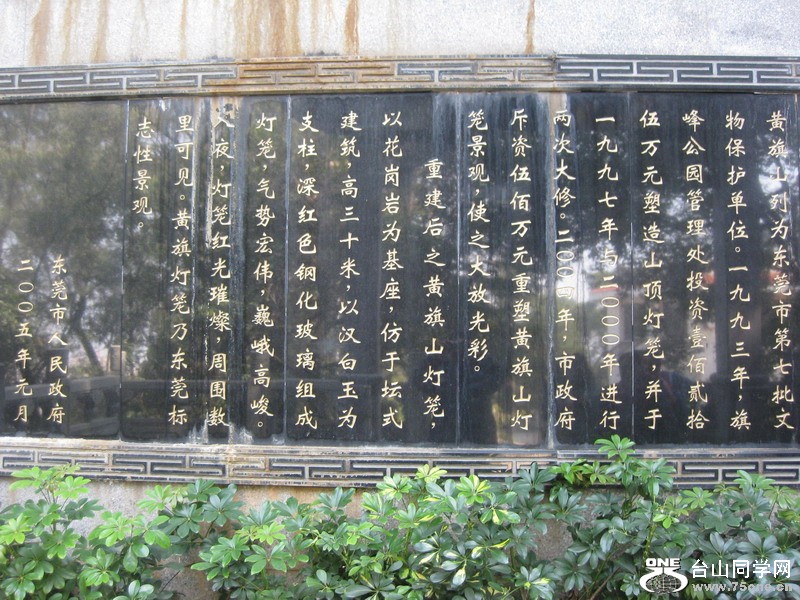 黄旗山列为东莞市第七批文
物保护单位。一九九三年，旗
峰公园管理处投资壹佰贰拾
伍万元塑造山顶灯笼，并于
一九九七年与二〇〇〇年进行
两次大修。二〇〇四年，市政府
斥资伍佰万元重塑黄旗山灯
笼景观，使之大放光彩。
重建后之黄旗山灯笼，
以花岗岩为基座，仿于坛式
建筑，高三十米，以汉白玉为
支柱，深红色钢化玻璃组成
灯笼，气势宏伟，巍峨高峻。
入夜，灯笼红光璀燦，周围数
里可见。黄旗灯笼乃东莞标
志性景观。
东莞市人民政府
二〇〇五年元月
ONE
台山同学网
www.75one.cn